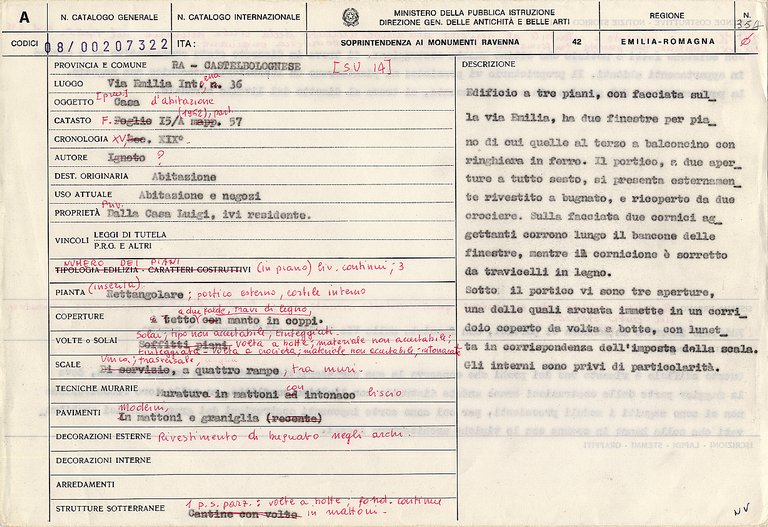 A
N. CATALOGO GENERALE
N. CATALOGO INTERNAZIONALE
MINISTERO DELLA PUBBLICA ISTRUZIONE
DIREZIONE GEN. DELLE ANTICHITÀ E BELLE ARTI
REGIONE
N.
35A
CODICI
08/00207322
ITA:
SOPRINTENDENZA AI MONUMENTI RAVENNA
42
EMILIA-ROMAGNA
PROVINCIA E COMUNE RA - CASTELBOLOGNESE [S.U 14]
LUOGO Via Emilia Int.erna n. 36
OGGETTO [priv.] Casa d'abitazione
CATASTO F. Foglio 15/A (1962), part. mapp. 57
CRONOLOGIA XV, Sec. XIX°.
AUTORE Ignoto ?
DEST. ORIGINARIA Abitazione
USO ATTUALE Abitazione e negozi
PROPRIETÀ Priv. Dalla Casa Luigi, ivi residente.
VINCOLI
LEGGI DI TUTELA
P.R.G. E ALTRI
NUMERO DEI PIANI
TIPOLOGIA EDILIZIA - CARATTERI COSTRUTTIVI (in piano) liv. continui; 3
PIANTA (inserita) Rettangolare; portico esterno, cortile interno
a due falde, travi di legno,
COPERTURE a tetto con manto in coppi.
Solai; tipo non accertabile; tinteggiati.
VOLTE o SOLAI Soffitti piani, volta a botte; materiale non accertabile;
tinteggiata - volta a crociera; materiale non accertabile; intonacate
Unica; trasversale,
SCALE Di servizio, a quattro rampe, tra muri.
TECNICHE MURARIE Muratura in mattoni ad con intonaco liscio
Moderni,
PAVIMENTI In mattoni e graniglia (recente)
DECORAZIONI ESTERNE Rivestimento di bugnato negli archi.
DECORAZIONI INTERNE
ARREDAMENTI
1 p.s. parz.: volte a botte; fond. continue
STRUTTURE SOTTERRANEE Cantine con volte in mattoni.
DESCRIZIONE
Edificio a tre piani, con facciata sul_
la via Emilia, ha due finestre per pia_
no di cui quelle al terzo a balconcino con
ringhiera in ferro. Il portico, a due aper_
ture a tutto sesto, si presenta esternamen_
te rivestito a bugnato, e ricoperto da due
crociere. Sulla facciata due cornici ag_
gettanti corrono lungo il bancone delle
finestre, mentre il cornicione è sorretto
da travicelli in legno.
Sotto il portico vi sono tre aperture,
una delle quali arcuata immette in un corri_
doio coperto da volta a botte, con lunet_
ta in corrispondenza dell'imposta della scala.
Gli interni sono privi di particolarità.